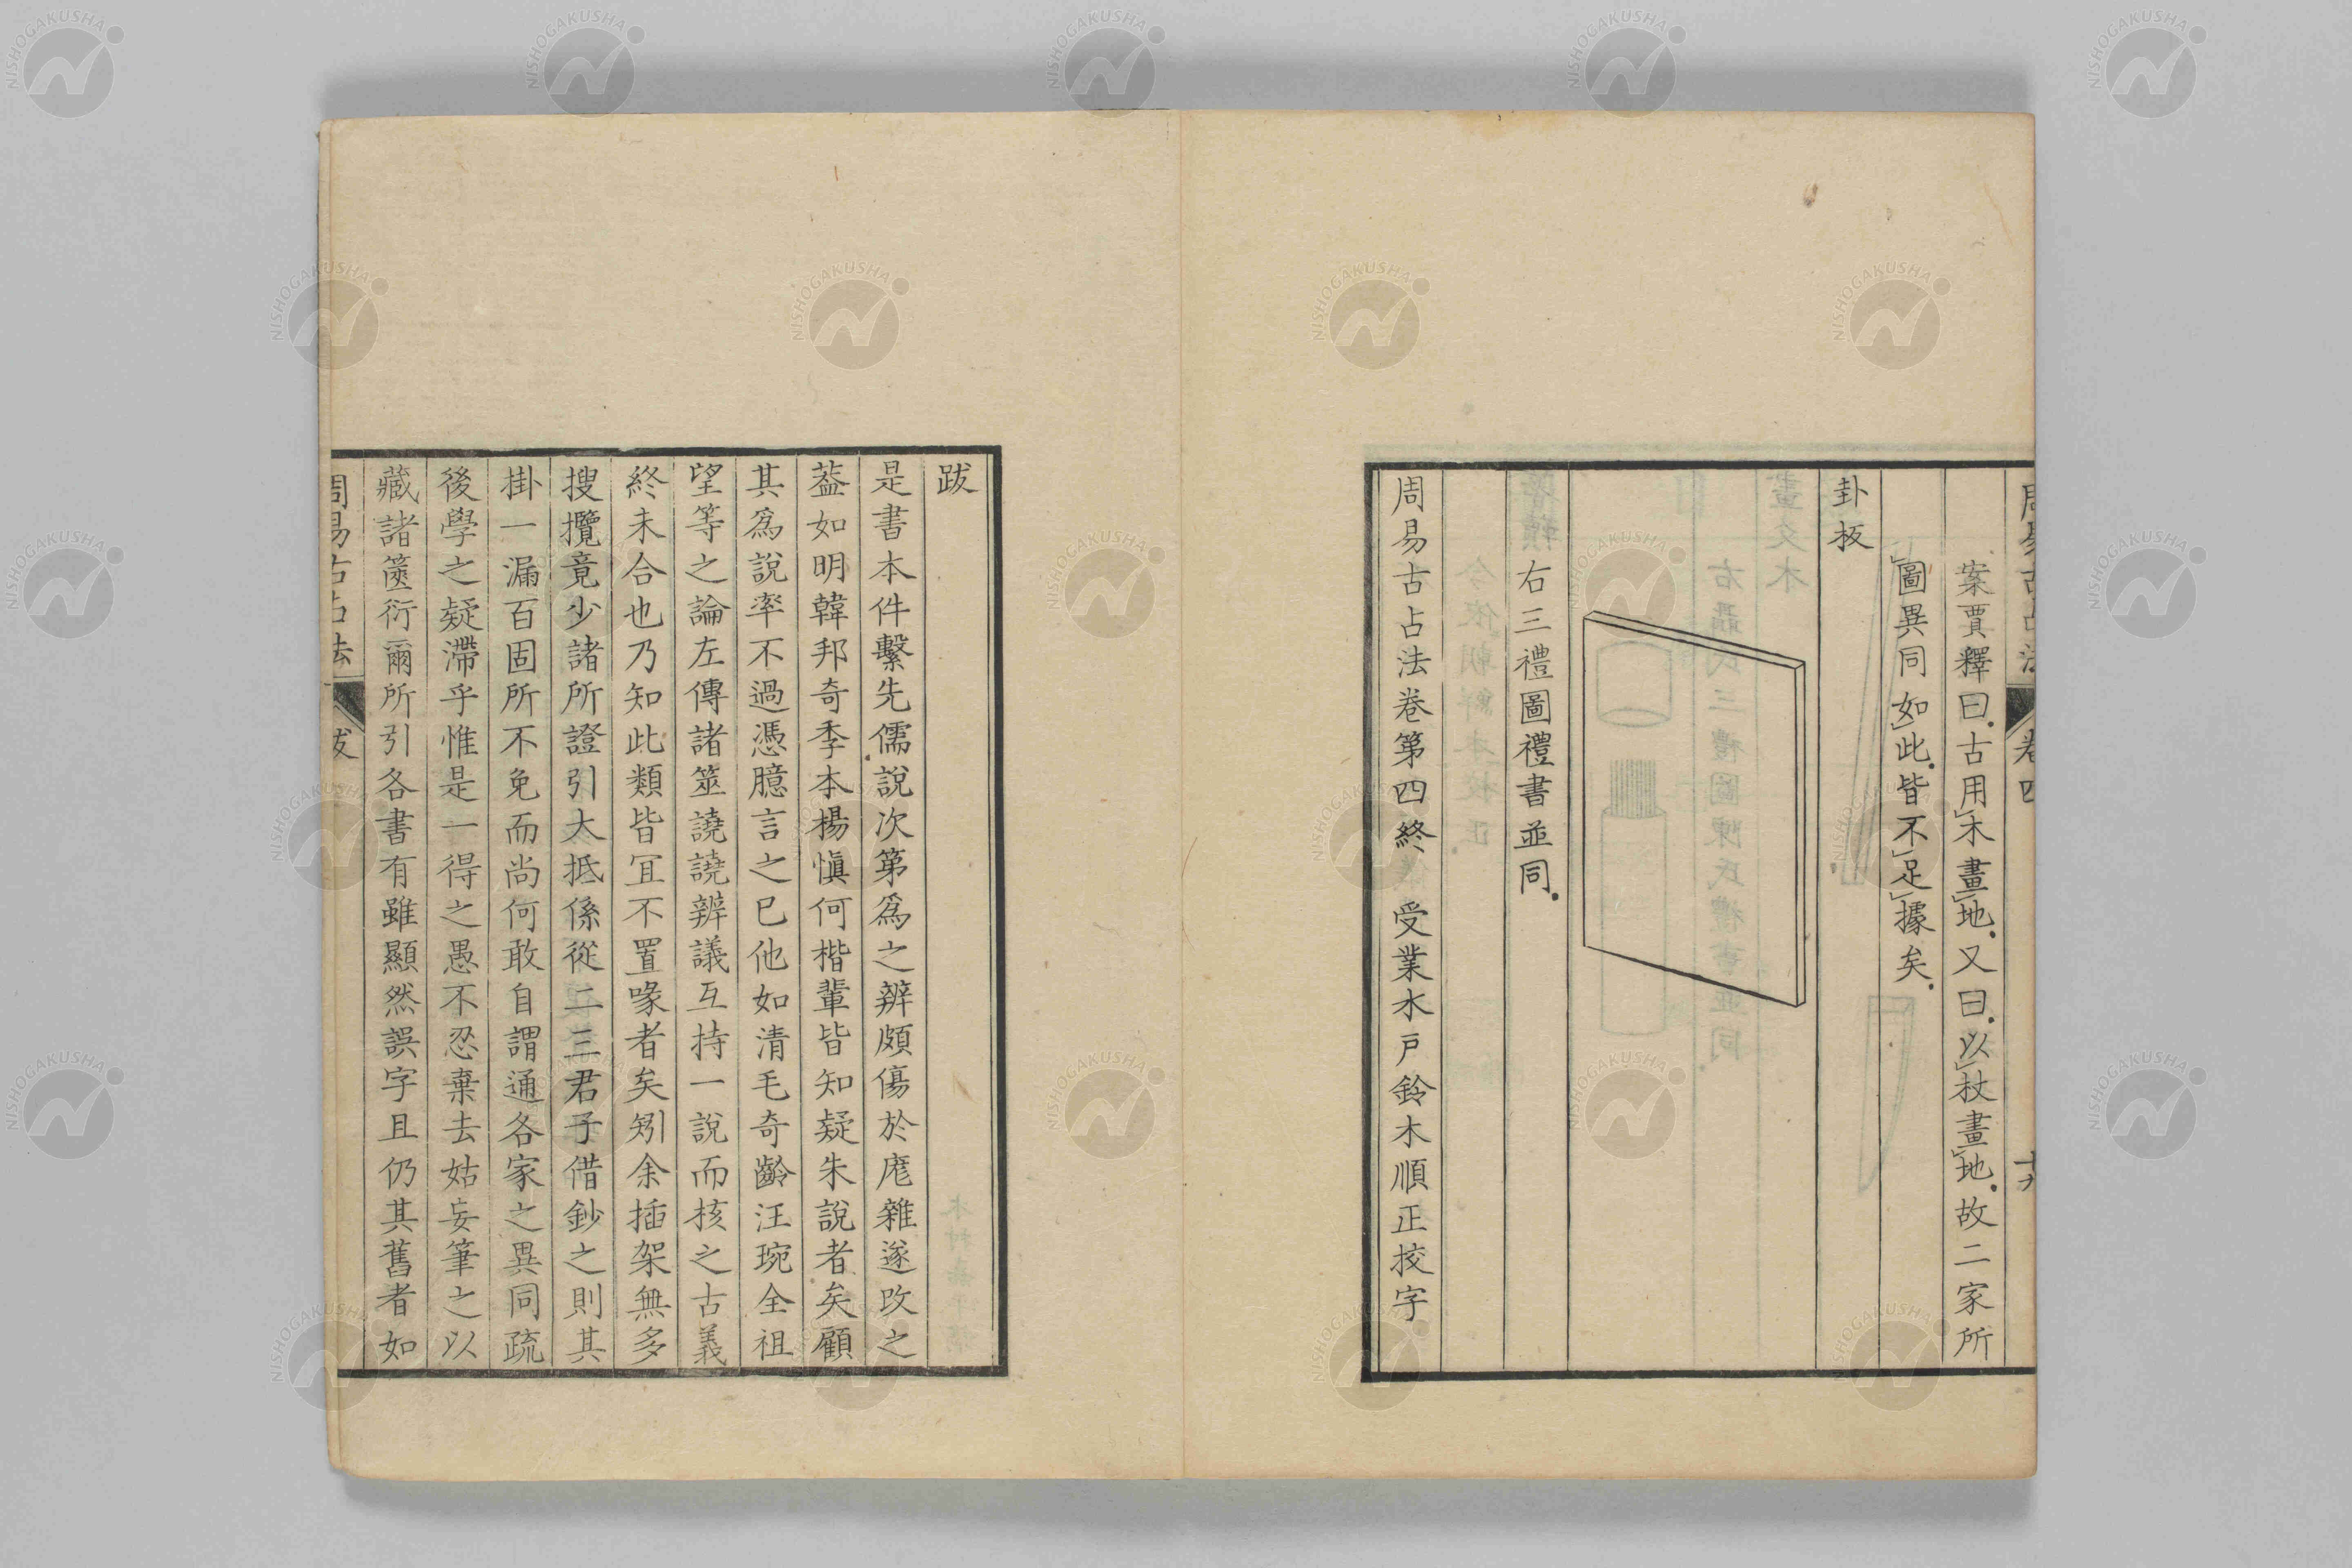 周易古占法 卷四 十六
案賈釋曰.古用木畫地.又曰.以杖畫地.故二家所
圖異同如此.皆不足據矣.
卦板
右三禮圖禮書並同.
周易古占法卷第四終 受業水戸鈴木順正挍字
跋
是書本件繫先儒說次第爲之辨頗傷於庬雜遂改之
葢如明韓邦奇季本楊愼何楷輩皆知疑朱說者矣顧
其爲說率不過憑臆言之已他如清毛奇齡汪琬全祖
望等之論左傳諸筮譊譊辨議互持一說而核之古義
終未合也乃知此類皆冝不置喙者矣矧余插架無多
搜攬竟少諸所證引大抵係從二三君子借鈔之則其
掛一漏百固所不免而尚何敢自謂通各家之異同疏
後學之疑滯乎惟是一得之愚不忍棄去姑妄筆之以
藏諸篋衍爾所引各書有雖顯然誤字且仍其舊者如
周易古占法 跋
NISHOGAKUSHA